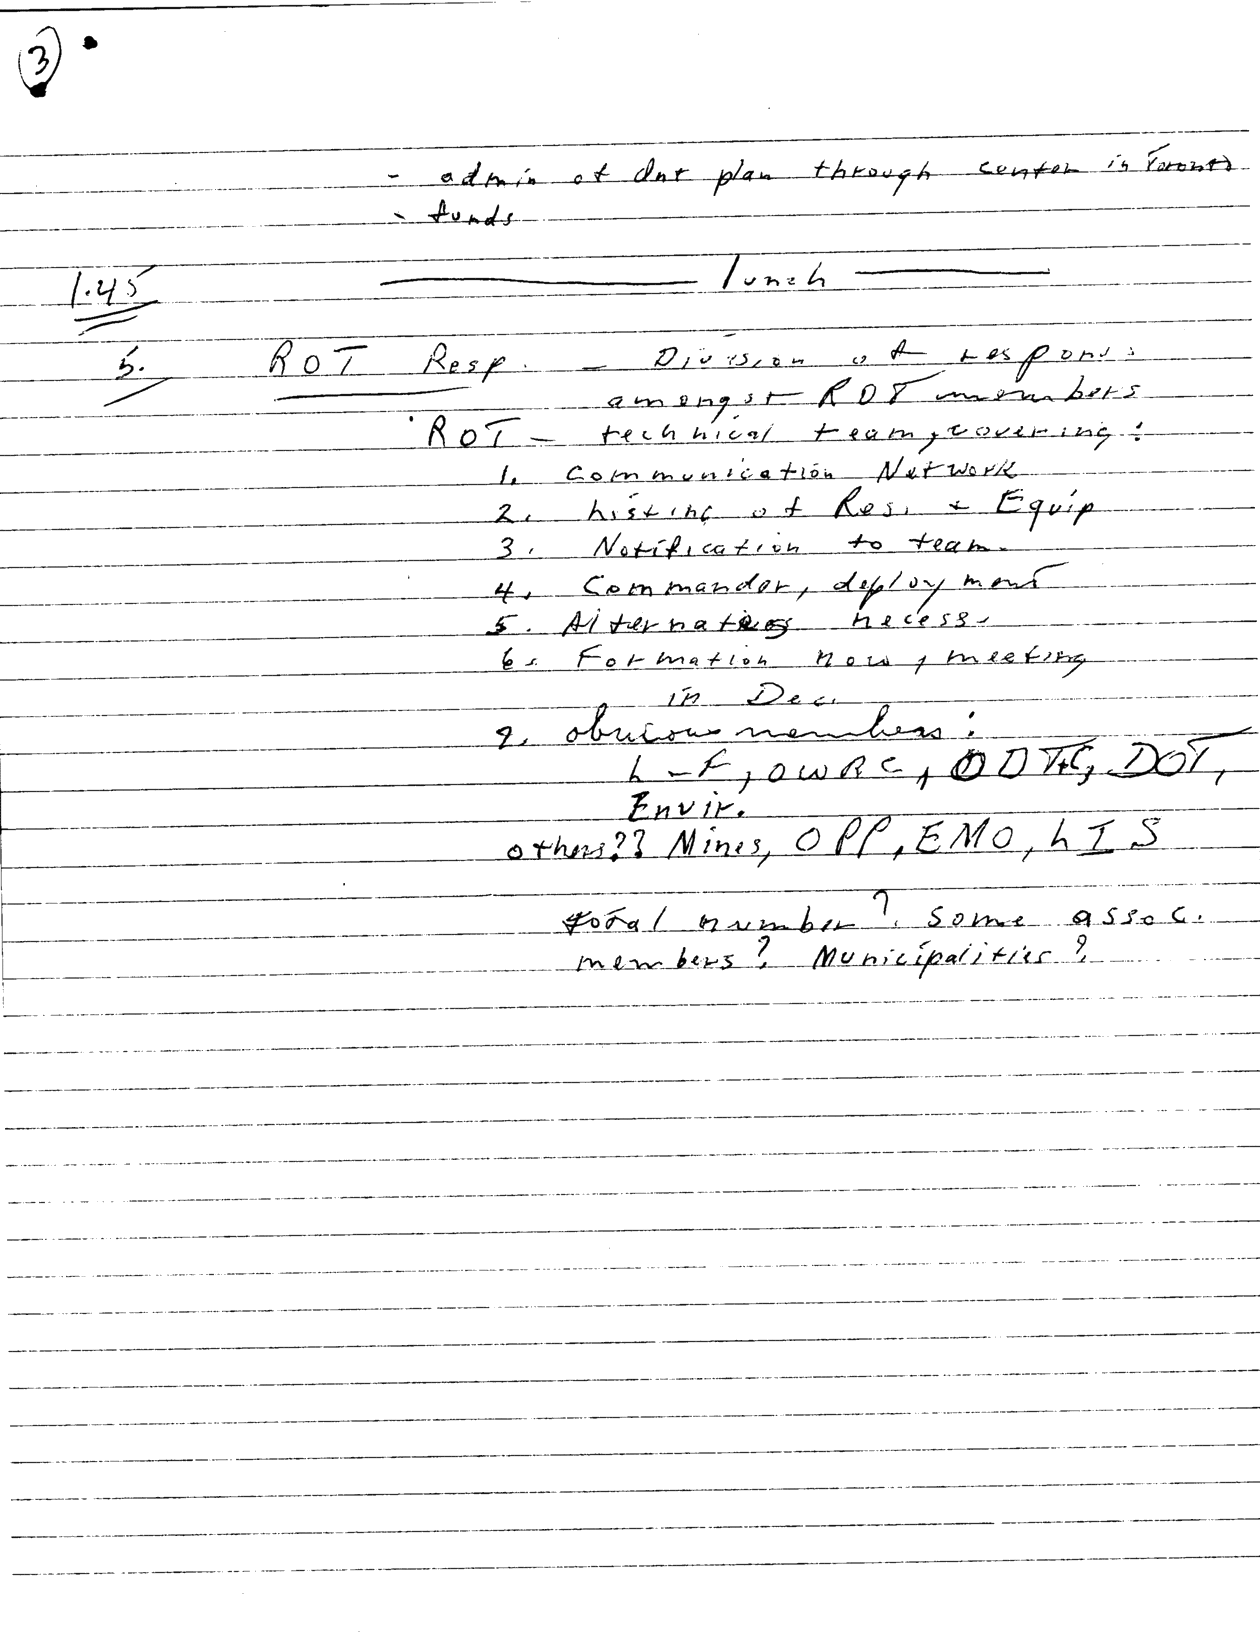 3
- admin of Ont plan through center in Toronto
- funds
lunch
1.45
5. ROT Resp. - Division of respons:
amongst ROT members
ROT - technical team, covering:
1. Communication Network
2. Listing of Res. + Equip
3. Notification to team.
4. Commander, deployment
5. Alternates necess.
6. Formation now, meeting
in Dec.
7. obvious members:
L-F, OWRC, ODTC, DOT,
Envir.
others?? Mines, OPP, EMO, LIS
total number? Some assoc.
members? Municipalities?